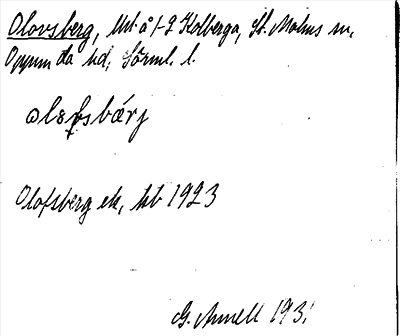 Olovsberg, lht å 1-2 Kolberga, St. Malms sn,
Oppunda hd, Sörml. l.
Olofsberg ek, kb 1923
G. Arnell 193.